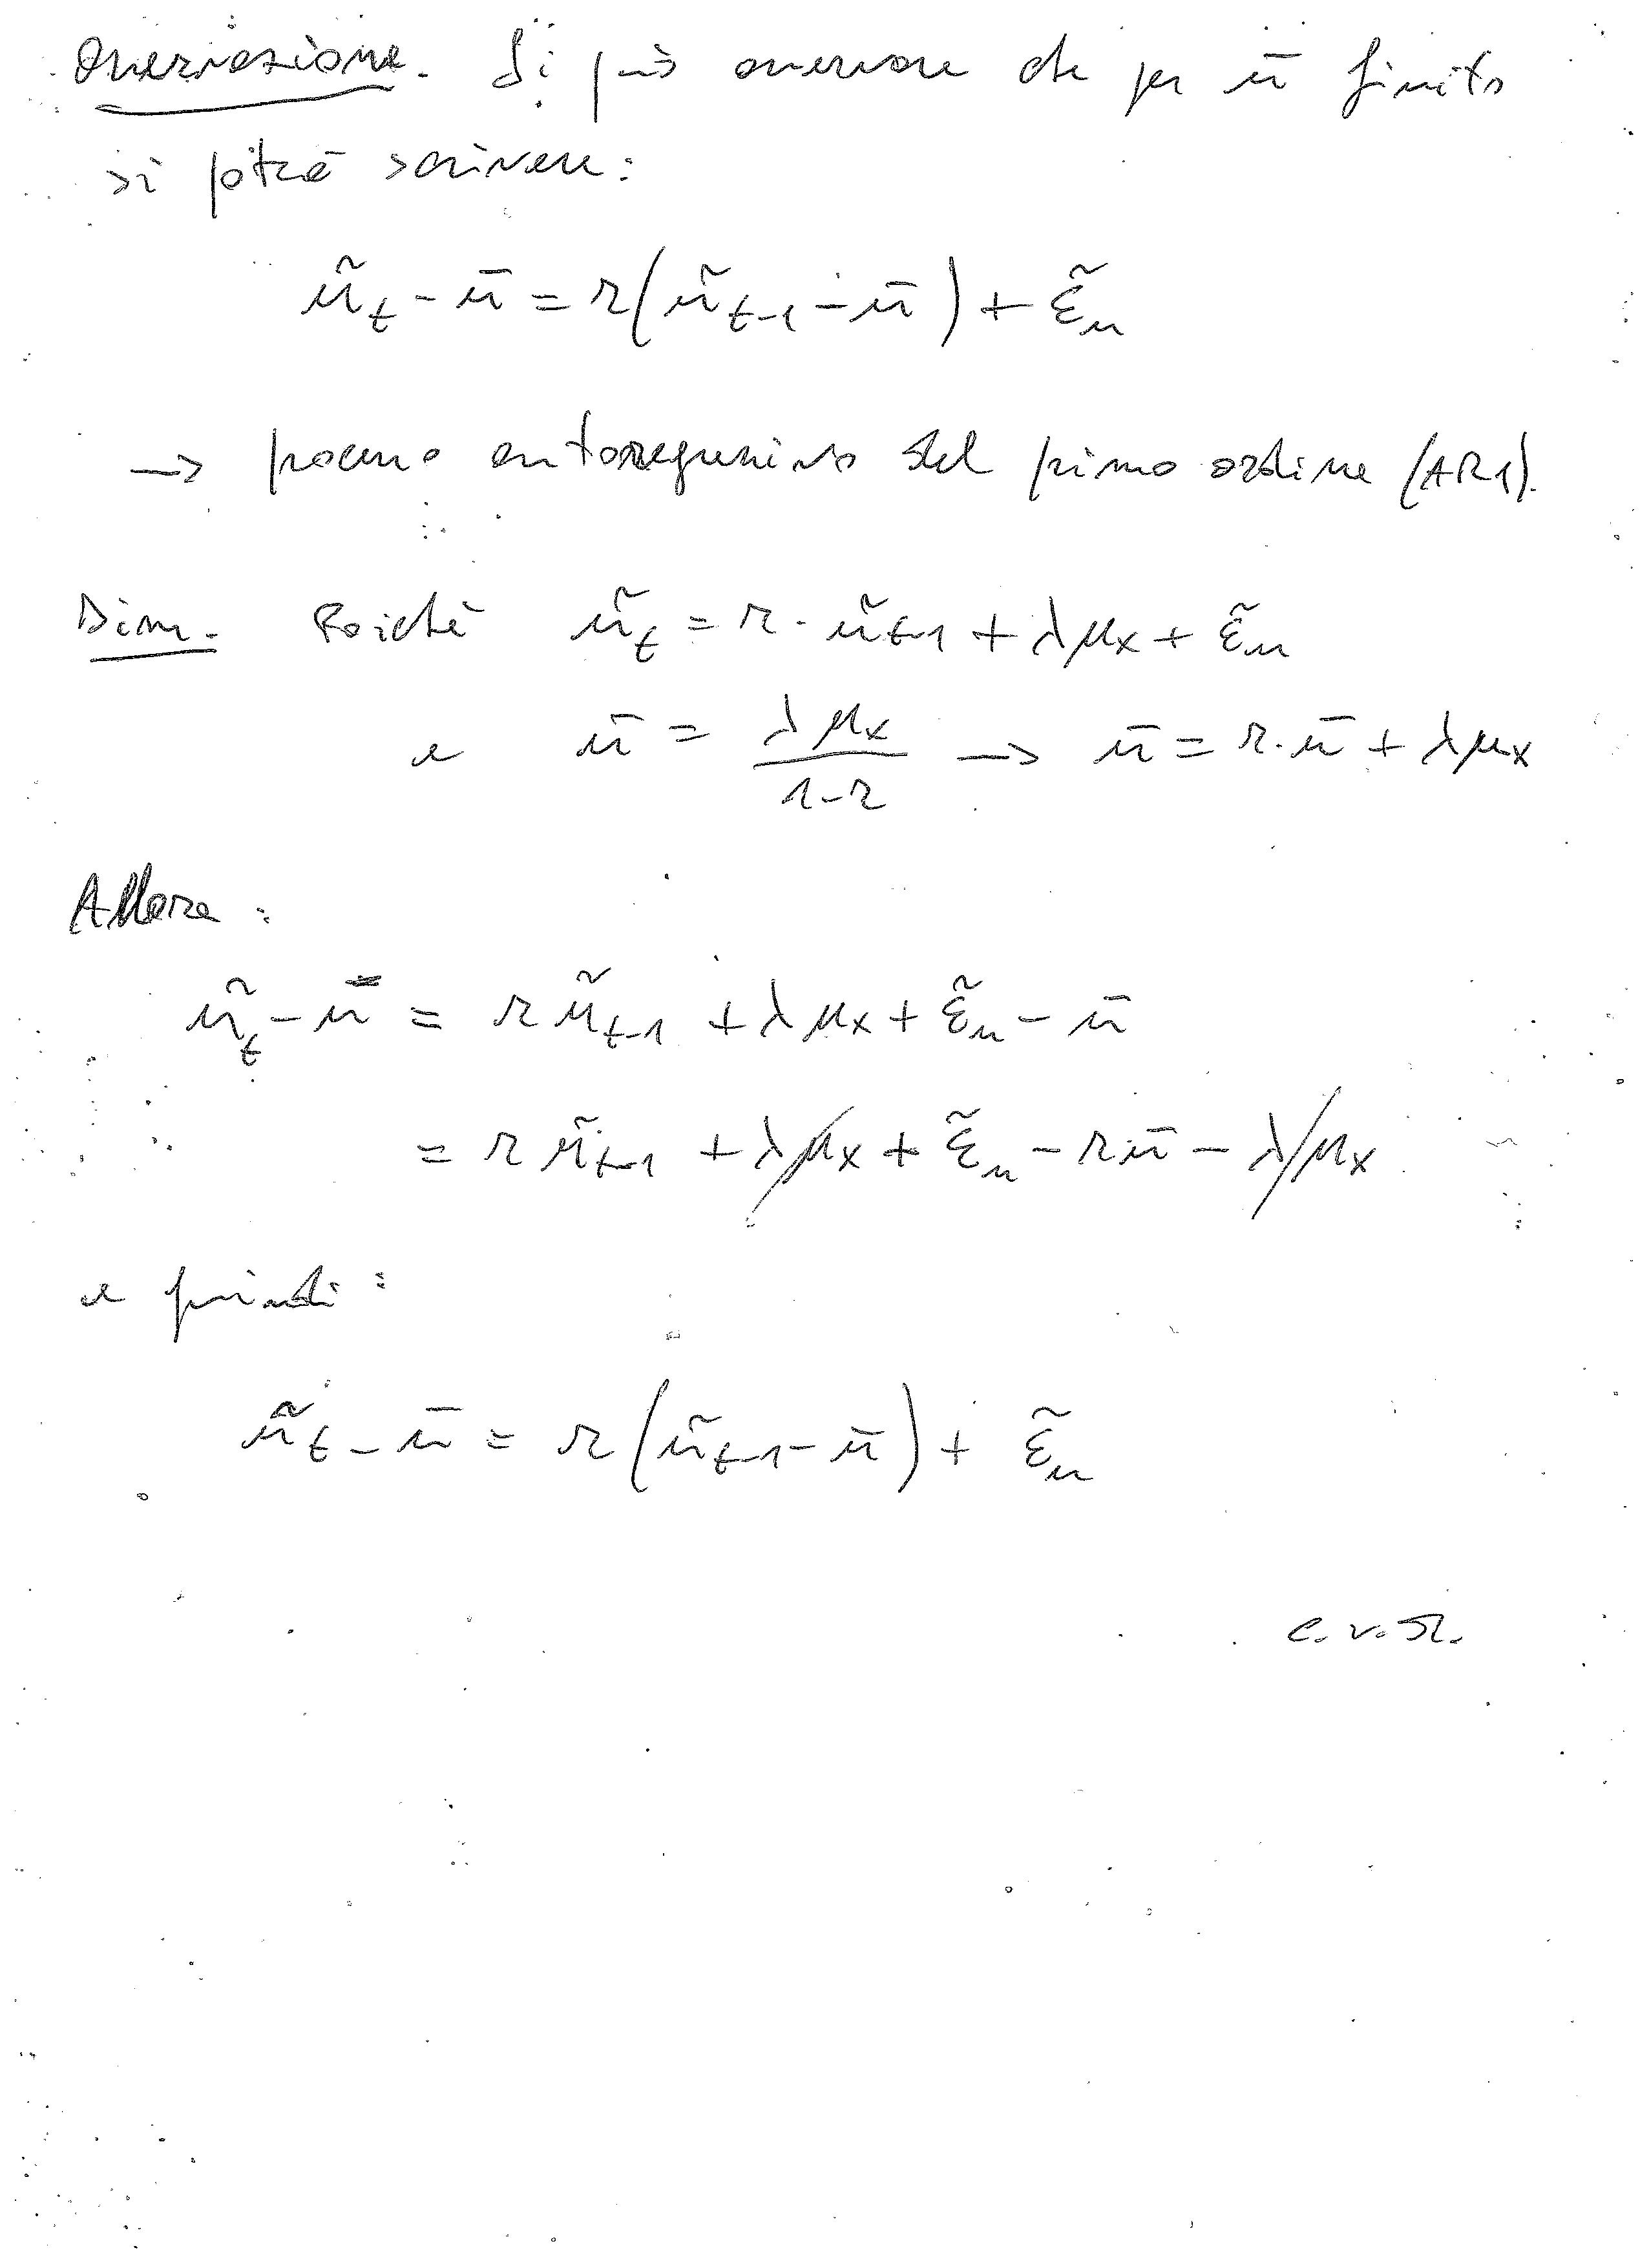 Osservazione. Si può osservare che per ū finito
si potrà scrivere:
ũ_t - ū = r(ũ_{t-1} - ū) + ε̃_u
→ processo autoregressivo del primo ordine (AR1).
Dim. Poiché ũ_t = r · ũ_{t-1} + λμ_x + ε̃_u
e ū = λμ_x / (1-r) → ū = r·ū + λμ_x
Allora:
ũ_t - ū = r ũ_{t-1} + λμ_x + ε̃_u - ū
= r ũ_{t-1} + λμ_x + ε̃_u - rū - λμ_x
e quindi:
ũ_t - ū = r(ũ_{t-1} - ū) + ε̃_u
c.v.d.